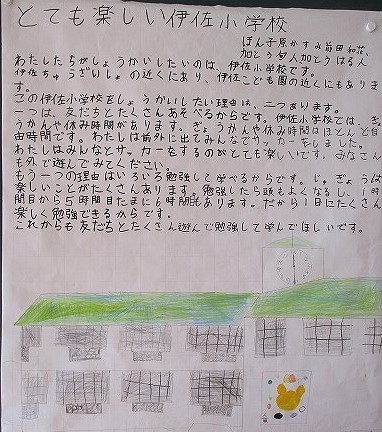 とても楽しい伊佐小学校
ぽん子原かすみ前田和花、
加とう夕人加とうはる人
わたしたちがしょうかいしたいのは、伊佐小学校です。
伊佐ちゅうざいしょの近くにあり、伊佐こども園の近くにもありま
す。
この伊佐小学校をしょうかいしたい理由は、二つあります。
一つは、友だちとたくさんあそべるからです。伊佐小学校では、ぎょ
うかんや休み時間があります。ぎょうかんや休み時間はほとんど自
由時間です。わたしは前外に出てみんなでサッカーをしました。
わたしは外なんとサッカーをするのがとても楽しいです。みなさん
も外で遊んでみてください。
もう一つの理由はいろいろ勉強して学べるからです。じゅぎょうは
楽しいことがたくさんあります。勉強したら頭もよくなるし、1時
間目から5時間目たまに6時間もあります。だから1日にたくさん
楽しく勉強できるからです。
これからも友だちとたくさん遊んで勉強して学んでほしいです。